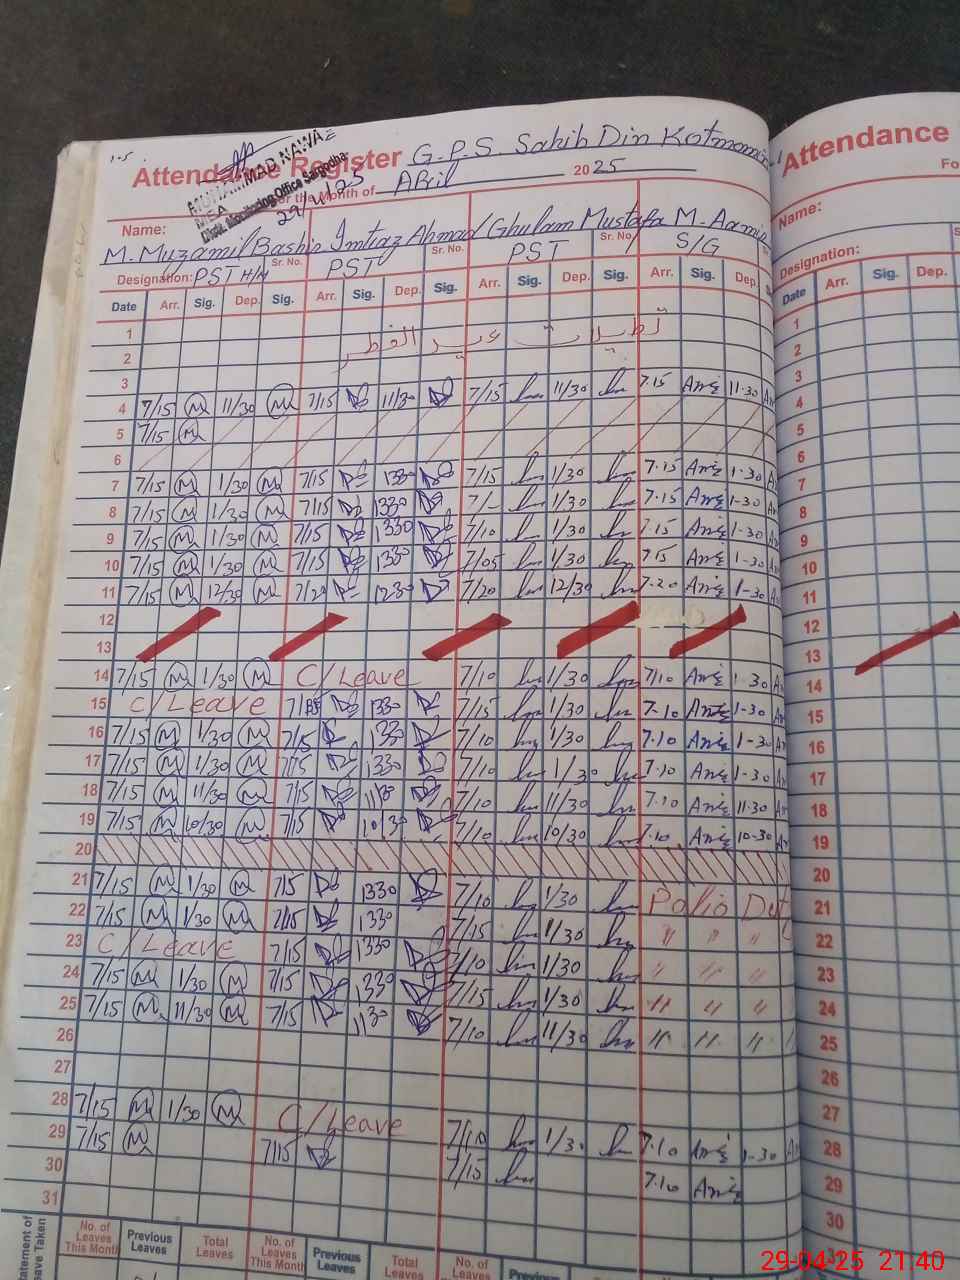 1-5.
Attendance Register G.P.S. Sahib Din Kotmomin
MUHAMMAD NAWAZ
MEA
Distt. Monitoring Office Sargodha
29/4/25
For the Month of April 2025
Name:
M. Muzamil Bashir Imtiaz Ahmad Ghulam Mustafa M. Aamir
Sr. No. Sr. No. Sr. No.
Designation: PST H/N PST PST S/G
Date Arr. Sig. Dep. Sig. Arr. Sig. Dep. Sig. Arr. Sig. Dep. Sig. Arr. Sig. Dep.
1 تعطیلات عید الفطر
2
3
4 7/15 M 11/30 M 7/15 11/30 7/15 11/30 7.15 11.30
5 7/15 M
6
7 7/15 M 1/30 M 7/15 1330 7/15 1/30 7.15 1-30
8 7/15 M 1/30 M 7/15 1330 7/- 1/30 7.15 1-30
9 7/15 M 1/30 M 7/15 1330 7/10 1/30 7.15 1-30
10 7/15 M 1/30 M 7/15 1330 7/05 1/30 7.15 1-30
11 7/15 M 12/30 M 7/20 1230 7/20 12/30 7.20 1-30
12
13
14 7/15 M 1/30 M C/Leave 7/10 1/30 7/10 1-30
15 C/Leave 1330 7/15 1/30 7.10 1-30
16 7/15 M 1/30 M 7/15 1330 7/10 1/30 7.10 1-30
17 7/15 M 1/30 M 7/15 1330 7/10 1/30 7.10 1-30
18 7/15 M 11/30 M 7/15 1130 7/10 11/30 7.10 11.30
19 7/15 M 10/30 M 7/15 10/30 7/10 10/30 7.10 10-30
20
21 7/15 M 1/30 M 7/15 1330 7/10 1/30 Polio Dut
22 7/15 M 1/30 M 7/15 1330 7/15 1/30 " " "
23 C/Leave 7/15 1330 7/10 1/30 " " "
24 7/15 M 1/30 M 7/15 1330 7/15 1/30 " " "
25 7/15 M 11/30 M 7/15 1130 7/10 11/30 " " "
26
27
28 7/15 M 1/30 M C/Leave 7/10 1/30 7.10 1-30
29 7/15 M 7/15 7/15 7.10
30
31
Statement of Leave Taken
No. of Leaves This Month Previous Leaves Total Leaves No. of Leaves This Month Previous Leaves Total Leaves No. of Leaves Previous
Attendance
Fo
Name:
Designation:
Date Arr. Sig. Dep.
1
2
3
4
5
6
7
8
9
10
11
12
13
14
15
16
17
18
19
20
21
22
23
24
25
26
27
28
29
30
29-04-25 21:40